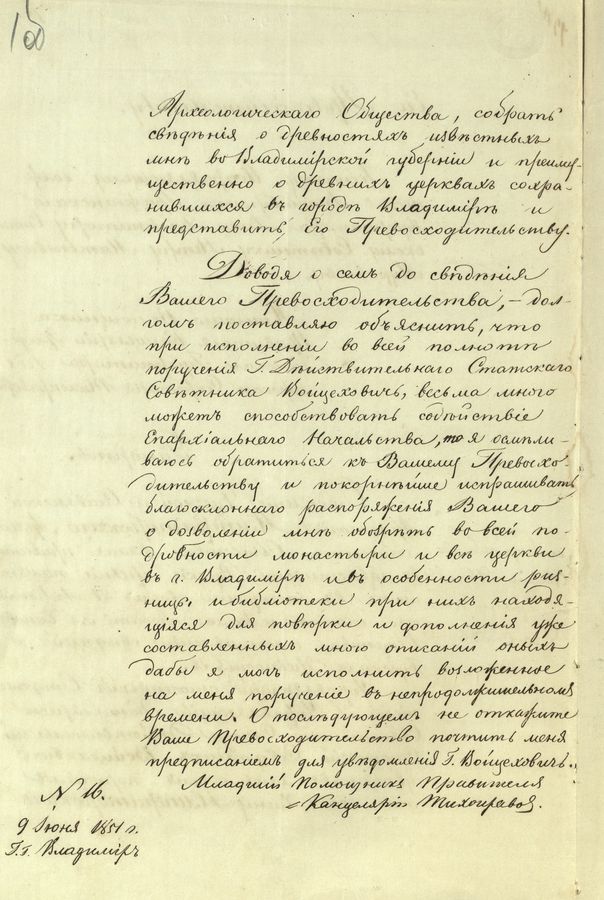 160
Археологическаго Общества, собрать
свѣдѣнія о древностяхъ извѣстныхъ
мнѣ во Владимірской губерніи и преиму-
щественно о древнихъ церквахъ сохра-
нившихся въ городѣ Владимірѣ и
представить Его Превосходительству.
Доводя о семъ до свѣдѣнія
Вашего Превосходительства, – дол-
гомъ поставляю объяснить, что
при исполненіи во всей полнотѣ
порученія Г. Дѣйствительнаго Статскаго
Совѣтника Войцеховичъ, весьма много
можетъ способствовать содѣйствіе
Епархіальнаго Начальства, то я осмѣли-
ваюсь обратиться къ Вашему Превосхо-
дительству и покорнѣйше испрашивать
благосклоннаго распоряженія Вашего
о дозволеніи мнѣ обозрѣть во всей по-
дробности монастыри и всѣ церкви
въ г. Владимірѣ и въ особенности риз-
ницы и библіотеки при нихъ находя-
щіяся для повѣрки и дополненія уже
составленныхъ мною описаній оныхъ
дабы я могъ исполнить возложенное
на меня порученіе въ непродолжительномъ
времени. О послѣдующемъ не откажите
Ваше Превосходительство почтить меня
предписаніемъ для увѣдомленія Г. Войцеховичъ.
Младшій Помощникъ Правителя
Канцеляріи Тихонравов.
N 16.
9 Іюня 1851 г.
Г. г. Владиміръ